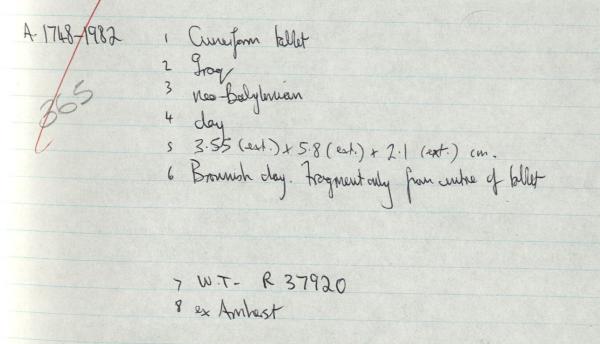 A. 1748-1982 1 Cuneiform tablet
2 Iraq
3 neo-Babylonian
4 clay
365
5 3.55 (ext.) x 5.8 (ext.) x 2.1 (ext.) cm.
6 Brownish clay. Fragment only from centre of tablet
7 W.T- R 37920
8 ex Amherst